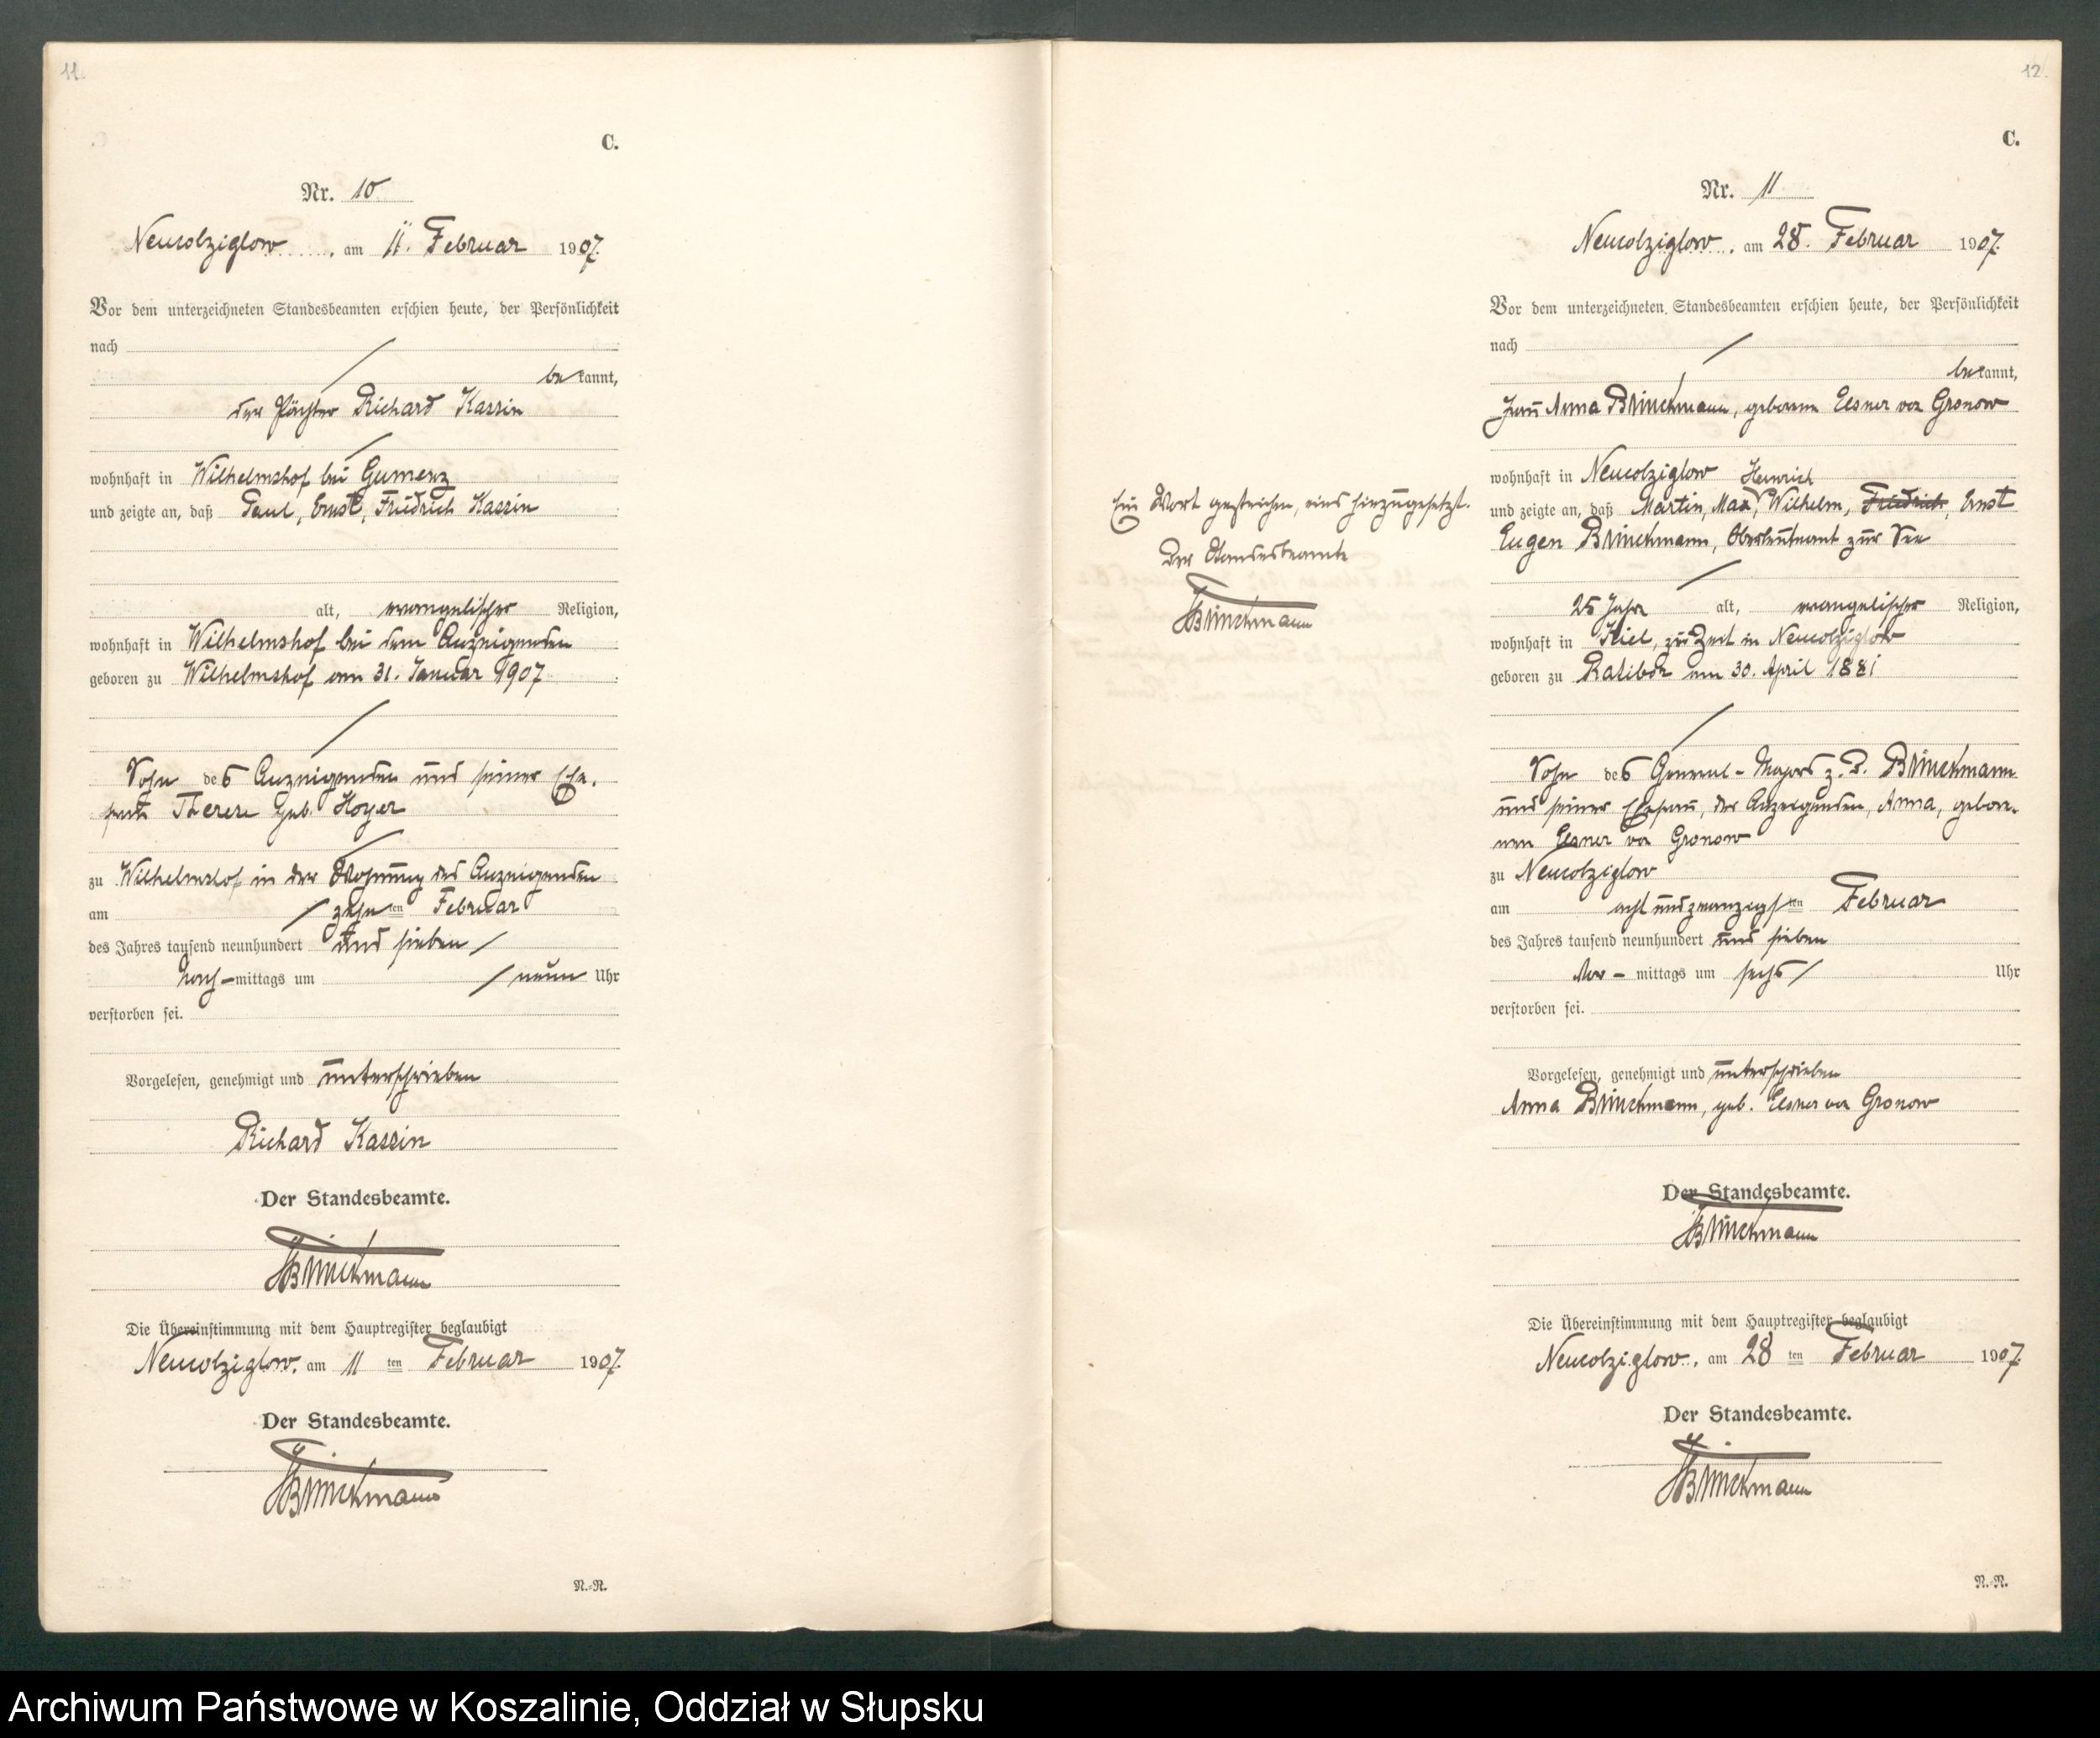 11.
C.
Nr. 10
Neukolziglow, am 11. Februar 1907.
Vor dem unterzeichneten Standesbeamten erschien heute, der Persönlichkeit
nach
bekannt,
der Pächter Richard Kassin
wohnhaft in Wilhelmshof bei Gumenz
und zeigte an, daß Paul, Ernst, Friedrich Kassin
alt, evangelischer Religion,
wohnhaft in Wilhelmshof bei dem Anzeigenden
geboren zu Wilhelmshof am 31. Januar 1907
Sohn des Anzeigenden und seiner Ehe-
frau Therese geb. Hoyer
zu Wilhelmshof in der Wohnung des Anzeigenden
am zehnten Februar
des Jahres tausend neunhundert und sieben
nach-mittags um neun Uhr
verstorben sei.
Vorgelesen, genehmigt und unterschrieben
Richard Kassin
Der Standesbeamte.
Brinckmann
Die Übereinstimmung mit dem Hauptregister beglaubigt
Neukolziglow, am 11 ten Februar 1907.
Der Standesbeamte.
Brinckmann
N.-R.
12.
C.
Nr. 11
Neukolziglow, am 28. Februar 1907.
Vor dem unterzeichneten Standesbeamten erschien heute, der Persönlichkeit
nach
bekannt,
Frau Anna Brinckmann, geborene Elsner von Gronow
wohnhaft in Neukolziglow
Heinrich
und zeigte an, daß Martin, Max, Wilhelm, Friedrich, Ernst
Eugen Brinckmann, Oberleutnant zur See
25 Jahre alt, evangelischer Religion,
wohnhaft in Kiel, zur Zeit in Neukolziglow
geboren zu Ratibor am 30. April 1881
Sohn des General-Majors z. D. Brinckmann
und seiner Ehefrau, der Anzeigenden, Anna, gebore-
nen Elsner von Gronow
zu Neukolziglow
am acht und zwanzigsten Februar
des Jahres tausend neunhundert und sieben
Vor-mittags um sechs Uhr
verstorben sei.
Vorgelesen, genehmigt und unterschrieben
Anna Brinckmann, geb. Elsner von Gronow
Der Standesbeamte.
Brinckmann
Die Übereinstimmung mit dem Hauptregister beglaubigt
Neukolziglow, am 28 ten Februar 1907.
Der Standesbeamte.
Brinckmann
N.-R.
Ein Wort gestrichen, eins hinzugesetzt.
Der Standesbeamte
Brinckmann
Archiwum Państwowe w Koszalinie, Oddział w Słupsku